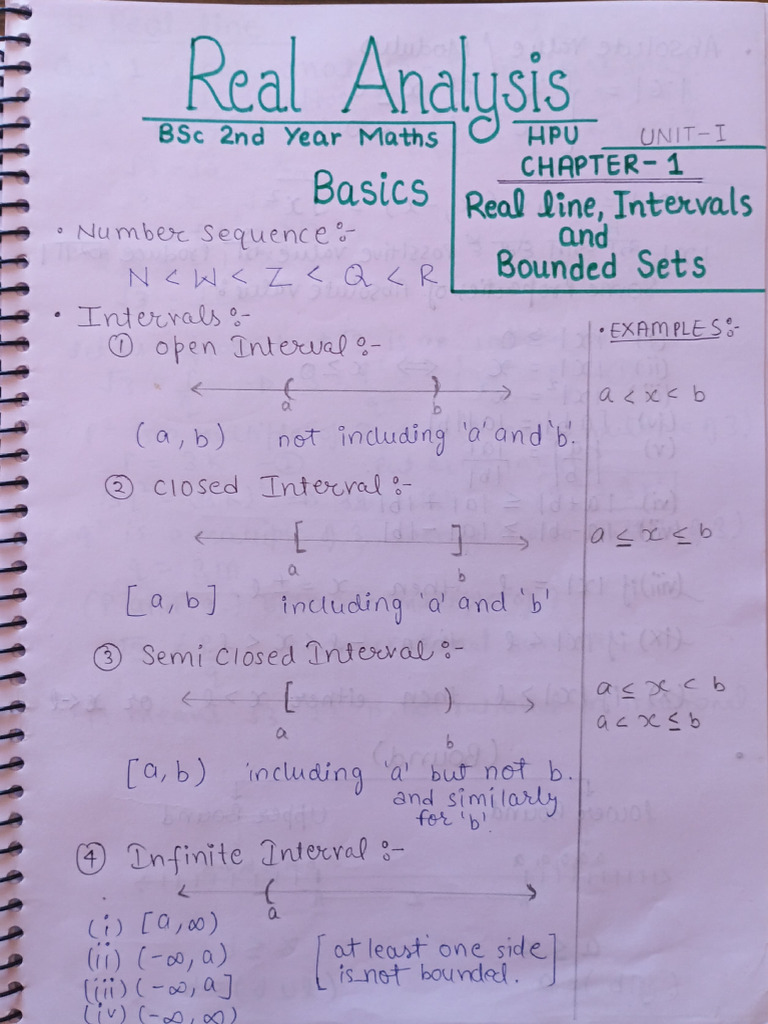 Real Analysis
BSc 2nd Year Maths
HPU UNIT-I
CHAPTER-1
Basics
Real line, Intervals
and
Bounded Sets
• Number sequence :-
N < W < Z < Q < R
• Intervals :-
• EXAMPLES :-
① open Interval :-
a b
a < x < b
(a, b) not including 'a' and 'b'.
② closed Interval :-
[ ]
a ≤ x ≤ b
a b
[a, b] including 'a' and 'b'
③ Semi closed Interval :-
[ )
a ≤ x < b
a < x ≤ b
a b
[a, b) including 'a' but not b.
and similarly
for 'b'.
④ Infinite Interval :-
(
a
(i) [a, ∞)
(ii) (-∞, a)
(iii) (-∞, a]
(iv) (-∞, ∞)
[at least one side
is not bounded.]